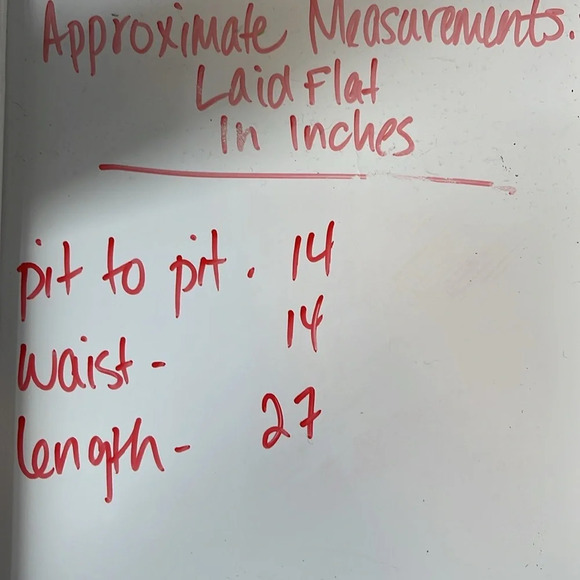 Approximate Measurements.
Laid Flat
In Inches
pit to pit. 14
waist - 14
length - 27